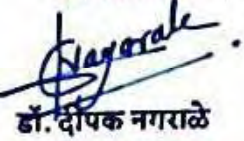 Nagarale
डॉ. दीपक नगराळे